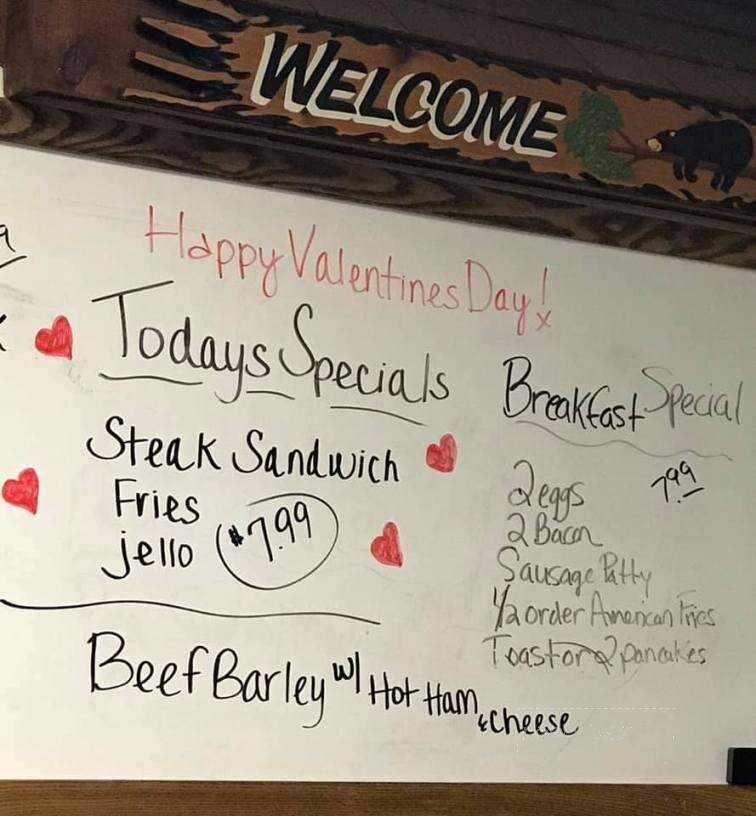 WELCOME
Happy Valentines Day!
Todays Specials
Steak Sandwich
Fries
jello $7.99
Beef Barley w/ Hot Ham & cheese
Breakfast Special
7.99
2 eggs
2 Bacon
Sausage Patty
1/2 order American Fries
Toast or 2 pancakes